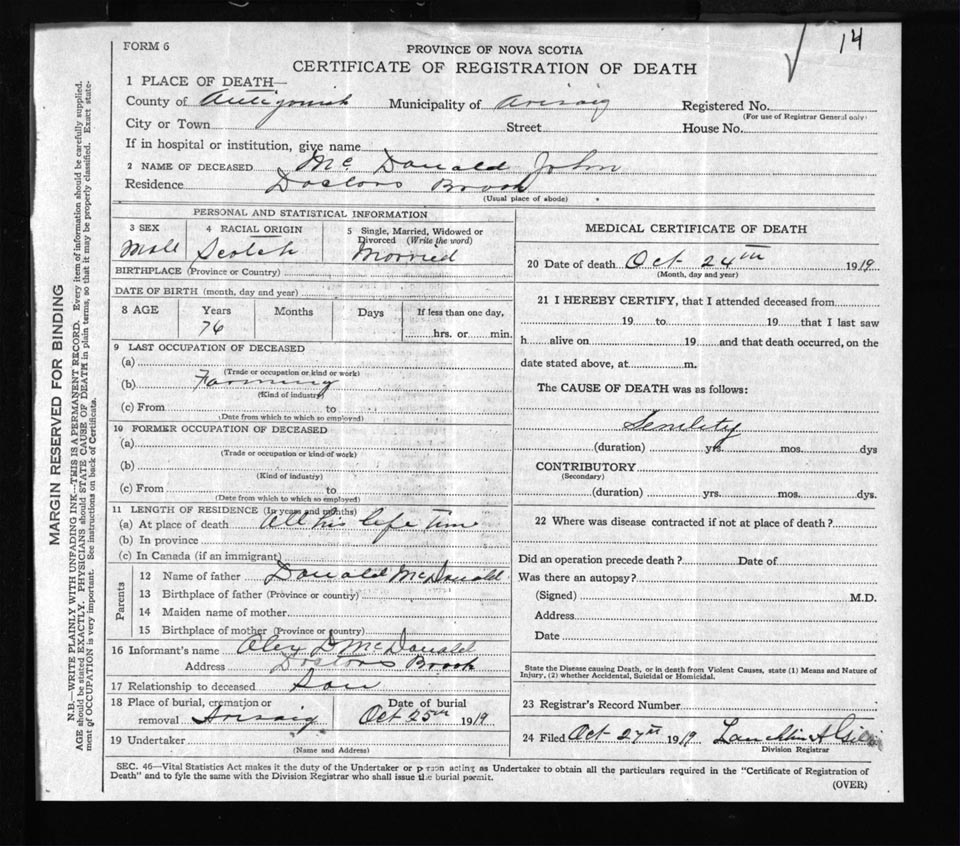 14
FORM 6
PROVINCE OF NOVA SCOTIA
CERTIFICATE OF REGISTRATION OF DEATH
1 PLACE OF DEATH—
County of Antigonish Municipality of Arisaig Registered No.
(For use of Registrar General only)
City or Town Street House No.
If in hospital or institution, give name
2 NAME OF DECEASED McDonald John
Residence Doctors Brook
(Usual place of abode)
PERSONAL AND STATISTICAL INFORMATION
3 SEX 4 RACIAL ORIGIN 5 Single, Married, Widowed or Divorced (Write the word)
Male Scotch Married
BIRTHPLACE (Province or Country)
DATE OF BIRTH (month, day and year)
8 AGE Years Months Days If less than one day,
76 hrs. or min.
9 LAST OCCUPATION OF DECEASED
(a)
(Trade or occupation or kind of work)
(b) Farming
(Kind of industry)
(c) From to
(Date from which to which so employed)
10 FORMER OCCUPATION OF DECEASED
(a)
(Trade or occupation or kind of work)
(b)
(Kind of industry)
(c) From to
(Date from which to which so employed)
11 LENGTH OF RESIDENCE (In years and months)
(a) At place of death All his life time
(b) In province
(c) In Canada (if an immigrant)
Parents
12 Name of father Donald McDonald
13 Birthplace of father (Province or country)
14 Maiden name of mother
15 Birthplace of mother (Province or country)
16 Informant's name Alex D McDonald
Address Doctors Brook
17 Relationship to deceased Son
18 Place of burial, cremation or removal Arisaig
Date of burial
Oct 25th 1919
19 Undertaker
(Name and Address)
MEDICAL CERTIFICATE OF DEATH
20 Date of death Oct 24th 1919
(Month, day and year)
21 I HEREBY CERTIFY, that I attended deceased from
19 to 19 that I last saw
h alive on 19 and that death occurred, on the
date stated above, at m.
The CAUSE OF DEATH was as follows:
Senility
(duration) yrs. mos. dys
CONTRIBUTORY
(Secondary)
(duration) yrs. mos. dys.
22 Where was disease contracted if not at place of death?
Did an operation precede death? Date of
Was there an autopsy?
(Signed) M.D.
Address
Date
State the Disease causing Death, or in death from Violent Causes, state (1) Means and Nature of
Injury, (2) whether Accidental, Suicidal or Homicidal.
23 Registrar's Record Number
24 Filed Oct 27th 1919
Division Registrar
SEC. 46—Vital Statistics Act makes it the duty of the Undertaker or person acting as Undertaker to obtain all the particulars required in the "Certificate of Registration of
Death" and to fyle the same with the Division Registrar who shall issue the burial permit.
(OVER)
MARGIN RESERVED FOR BINDING
N.B.—WRITE PLAINLY WITH UNFADING INK—THIS IS A PERMANENT RECORD. Every item of information should be carefully supplied.
AGE should be stated EXACTLY. PHYSICIANS should STATE CAUSE OF DEATH in plain terms, so that it may be properly classified. Exact state-
ment of OCCUPATION is very important. See instructions on back of Certificate.